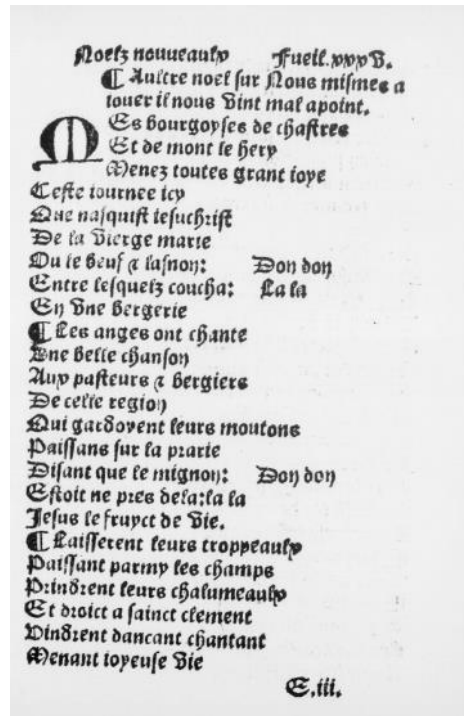 Noelz nouueaulx Fueil.xxxv.
¶ Aultre noel sur Nous mismes a
iouer il nous vint mal apoint.
MEs bourgoyses de chastres
Et de mont le hery
Menez toutes grant ioye
Ceste iournee icy
Que nasquist iesuchrist
De la vierge marie
Ou le beuf & lasnon: Don don
Entre lesquelz coucha: La la
En vne bergerie
¶ Les anges ont chante
Vne belle chanson
Aux pasteurs & bergiers
De celle region
Qui gardoyent leurs moutons
Paissans sur la prarie
Disant que le mignon: Don don
Estoit ne pres dela:la la
Jesus le fruyct de vie.
¶ Laisserent leurs troppeaulx
Paissant parmy les champs
Prindrent leurs chalumeaulx
Et droict a sainct clement
Vindrent dancant chantant
Menant ioyeuse vie
E.iii.